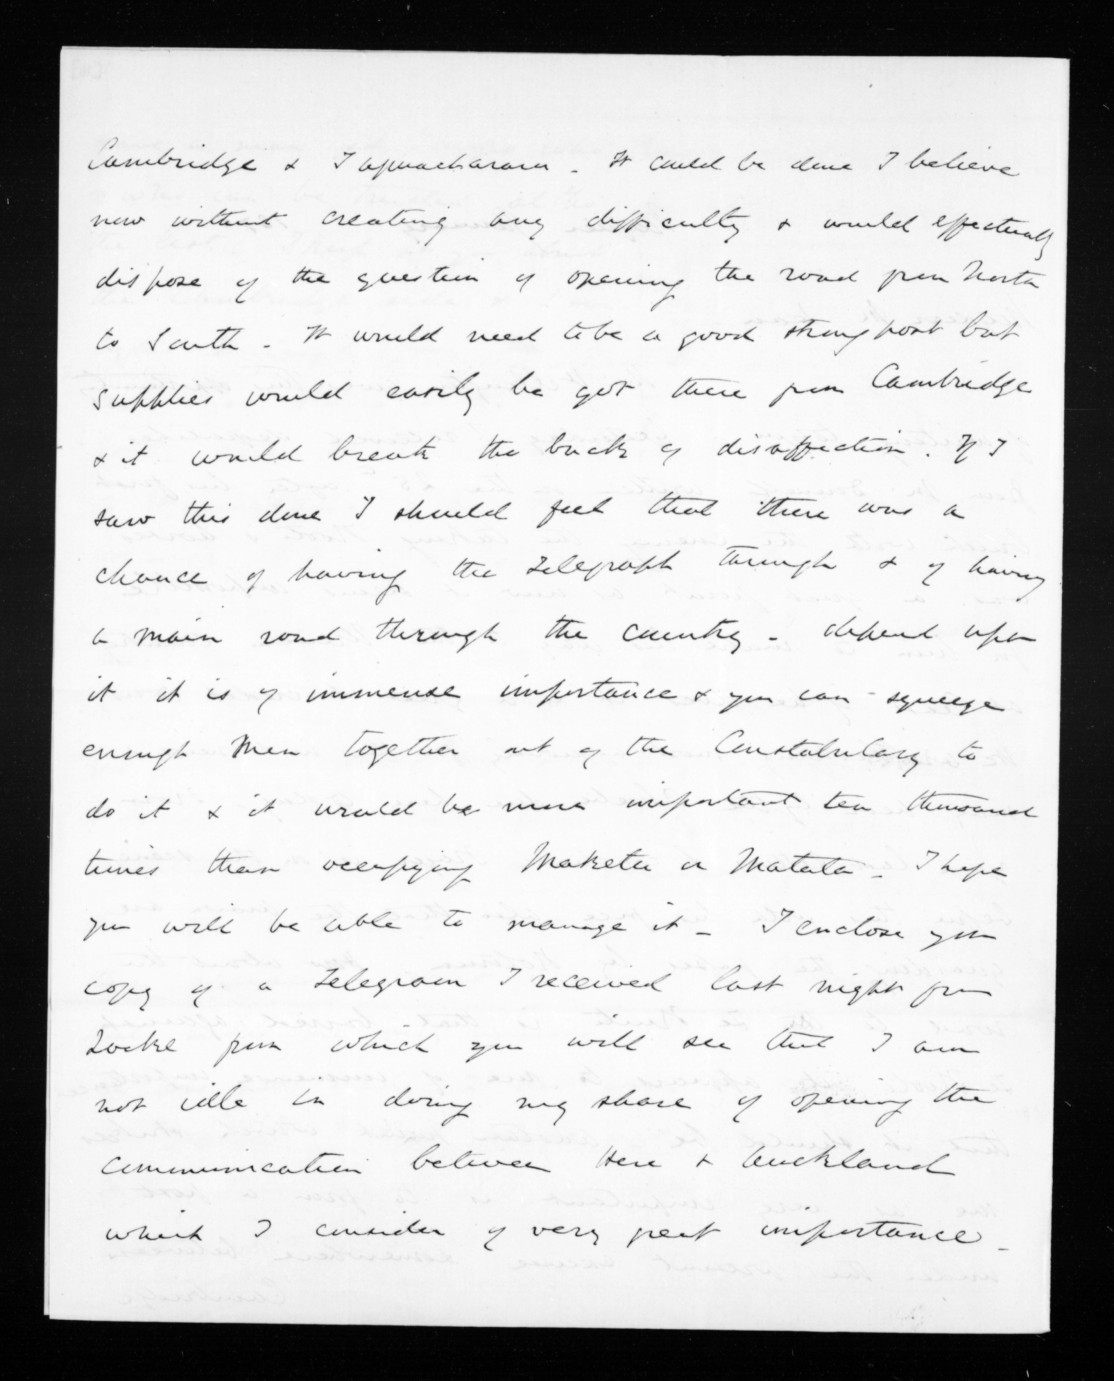 Cambridge & Tapuaeharuru - It could be done I believe
now without creating any difficulty & would effectually
dispose of the question of opening the road from North
to South - It would need to be a good strong post but
supplies would easily be got there from Cambridge
& it would break the back of disaffection. If I
saw this done I should feel that there was a
chance of having the Telegraph through & of having
a main road through the country - depend upon
it it is of immense importance & you can squeeze
enough men together out of the Constabulary to
do it & it would be more important ten thousand
times than occupying Maketu or Matata - I hope
you will be able to manage it - I enclose you
copy of a Telegram I received last night from
Locke from which you will see that I am
not idle in doing my share of opening the
communication between Here & Auckland
which I consider of very great importance -